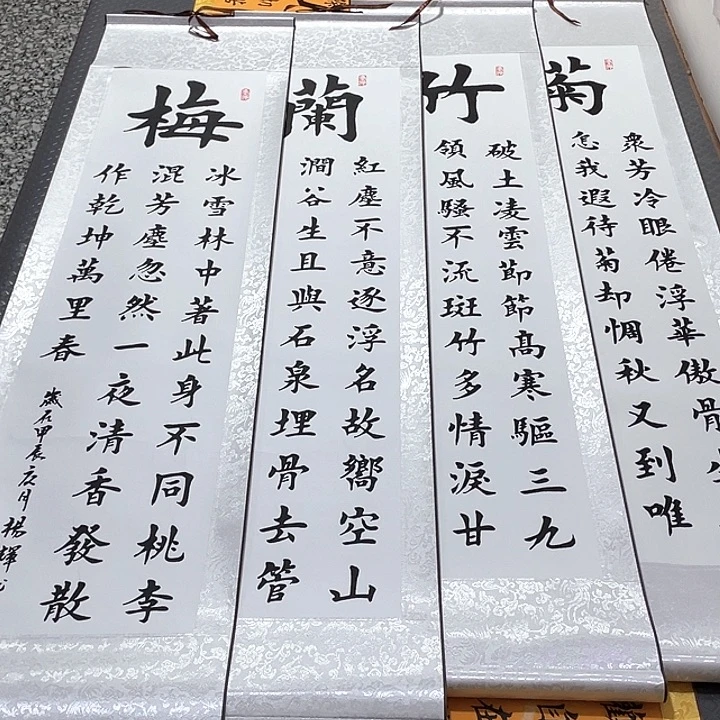 梅
冰雪林中著此身不同桃李
混芳塵忽然一夜清香發散
作乾坤萬里春
歲在甲辰月楊輝
蘭
紅塵不意逐浮名故嚮空山
澗谷生且與石泉埋骨去管
竹
破土凌雲節節高寒驅三九
領風騷不流斑竹多情淚甘
菊
衆芳冷眼倦浮華傲骨
怎我遐待菊却惆秋又到唯